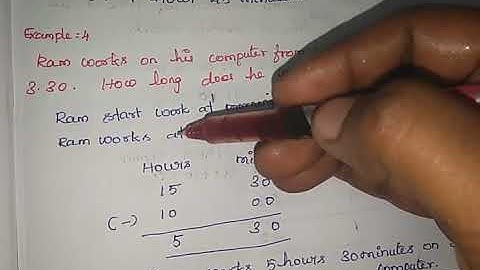 Example:4
Ram works on his computer from
3.30. How long does he
Ram start work at
Ram works at
Hours
15 30
(-) 10 00
5 30
5 hours 30 minutes on
computer.